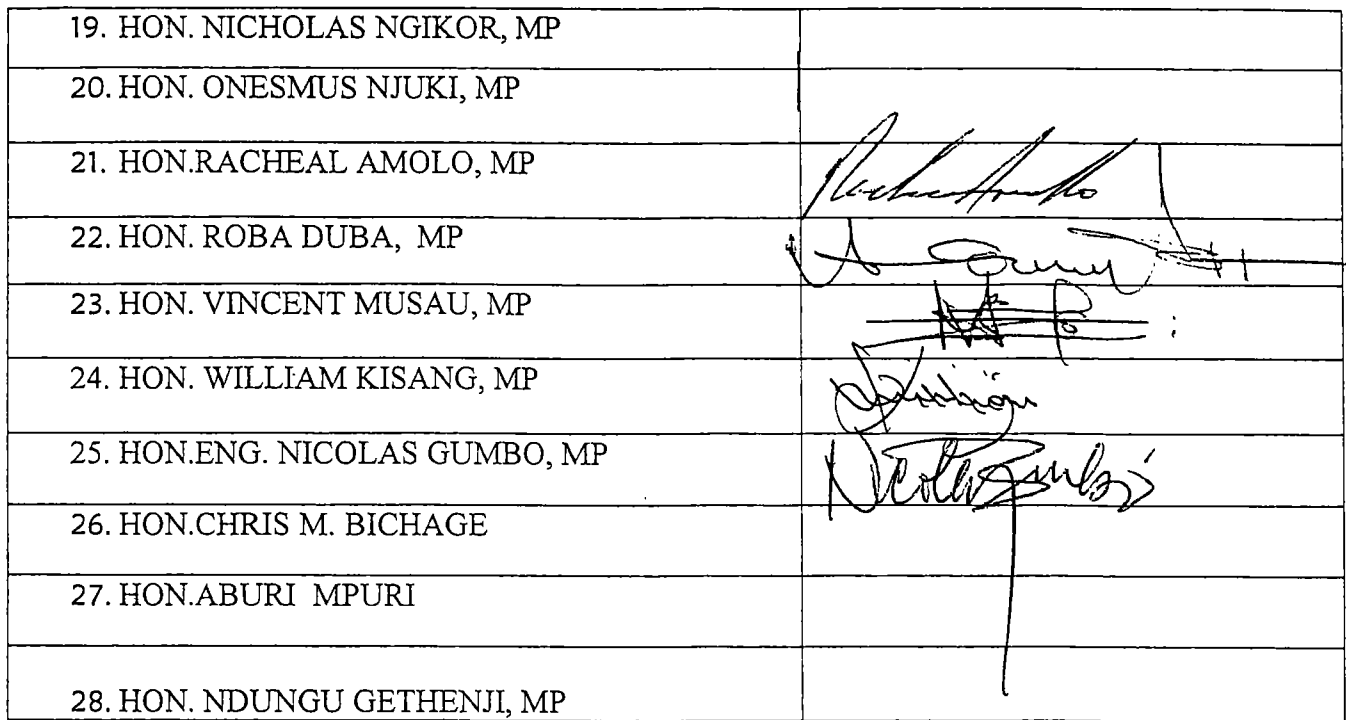 19. HON. NICHOLAS NGIKOR, MP
20. HON. ONESMUS NJUKI, MP
21. HON.RACHEAL AMOLO, MP
22. HON. ROBA DUBA, MP
23. HON. VINCENT MUSAU, MP
24. HON. WILLIAM KISANG, MP
25. HON.ENG. NICOLAS GUMBO, MP
26. HON.CHRIS M. BICHAGE
27. HON.ABURI MPURI
28. HON. NDUNGU GETHENJI, MP